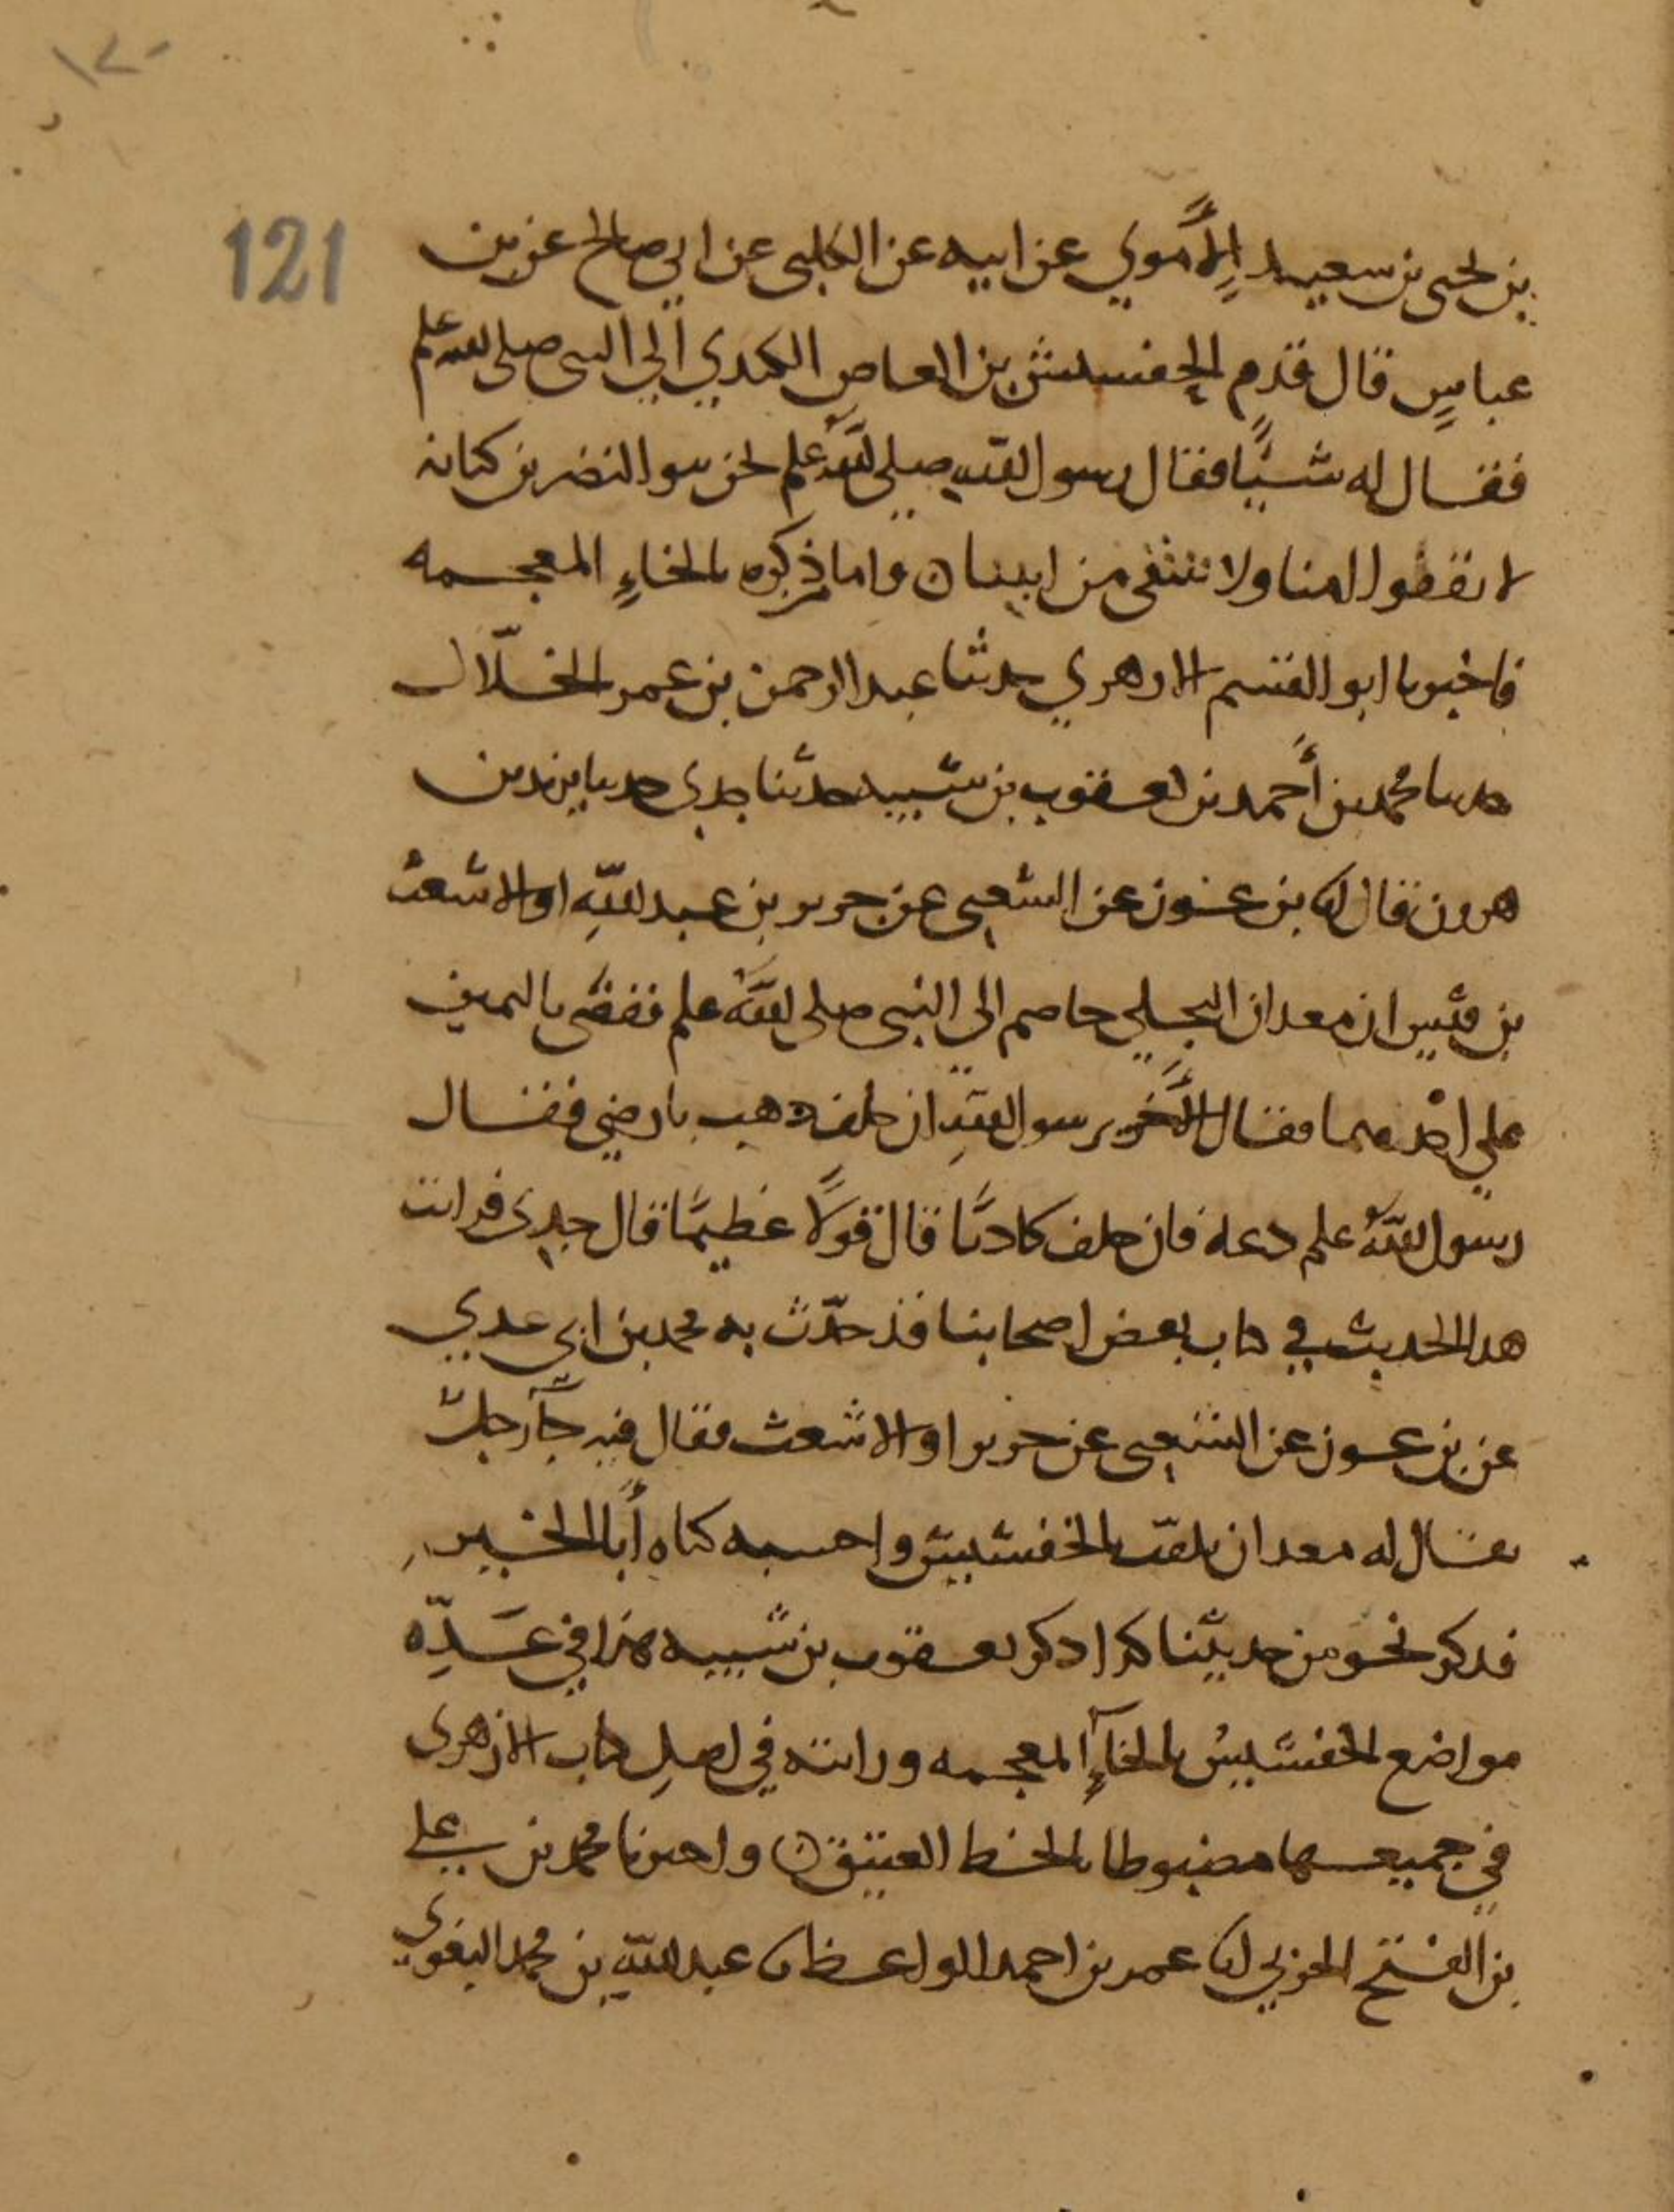 121
بن يحيى بن سعيد الأموي عن ابيه عن الكلبي عن ابي صالح عن بن
عباسٍ قال قدم الجفشيش بن العاص الكندي الي النبي صلى الله علم
فقال له شيئًا فقال رسول الله صلى الله علم نحن بنوا النضر بن كنانه
لا نقفوا امنا ولا ننتفى من ابينا ن واما من ذكره بالخاءِ المعجمه
فاخبرنا ابو القسم الازهري حدثنا عبد الرحمن بن عمر الخلّال
حدثنا محمد بن أحمد بن يعقوب بن شيبه حدثنا جدي حدثنا يزيد بن
هرون قال انا بن عون عن الشعبي عن جرير بن عبد الله او الاشعث
بن قيس ان معدان البجلي خاصم الى النبي صلى الله علم فقضى باليمين
علي احدهما فقال الآخر يرسول الله ان حلف ذهب بارضي فقال
رسول الله علم دعه فان حلف كاذبًا قال قولًا عظيمًا قال جدي قرات
هذا الحديث في كتاب بعض اصحابنا قد حدّث به محمد بن ابي عدي
عن بن عون عن الشعبي عن جرير او الاشعث فقال فيه جآ رجلٌ
يقال له معدان يلقب بالخفشيش واحسبه كناه أبا الخير
فذكر نحو من حديثنا كذا ذكر يعقوب بن شيبه هذا في عدّه
مواضع الخفشيش بالخآءِ المعجمه ورايته في اصلِ كتاب الازهري
في جميعها مضبوطا بالخط العتيق ن واخبرنا محمد بن علي
بن الفتح الحربي انا عمر بن احمد الواعظ نا عبد الله بن محمد البغوي